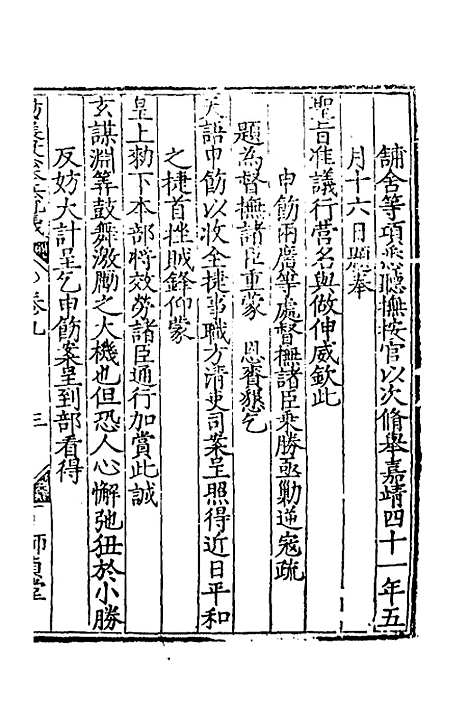 舖舍等項悉聽撫按官以次脩舉嘉靖四十一年五
月十六日題奉
聖旨准議行營名與做伸威欽此
申飭兩廣等處督撫諸臣乘勝亟勦逆寇疏
題為督撫諸臣重蒙　恩賚懇乞
天語申飭以收全捷事職方清吏司案呈照得近日平和
之捷首挫賊鋒仰蒙
皇上勑下本部將效勞諸臣通行加賞此誠
玄謀淵筭鼓舞激勵之大機也但恐人心懈弛狃於小勝
反妨大計呈乞申飭案呈到部看得
卷九
三
師貞堂